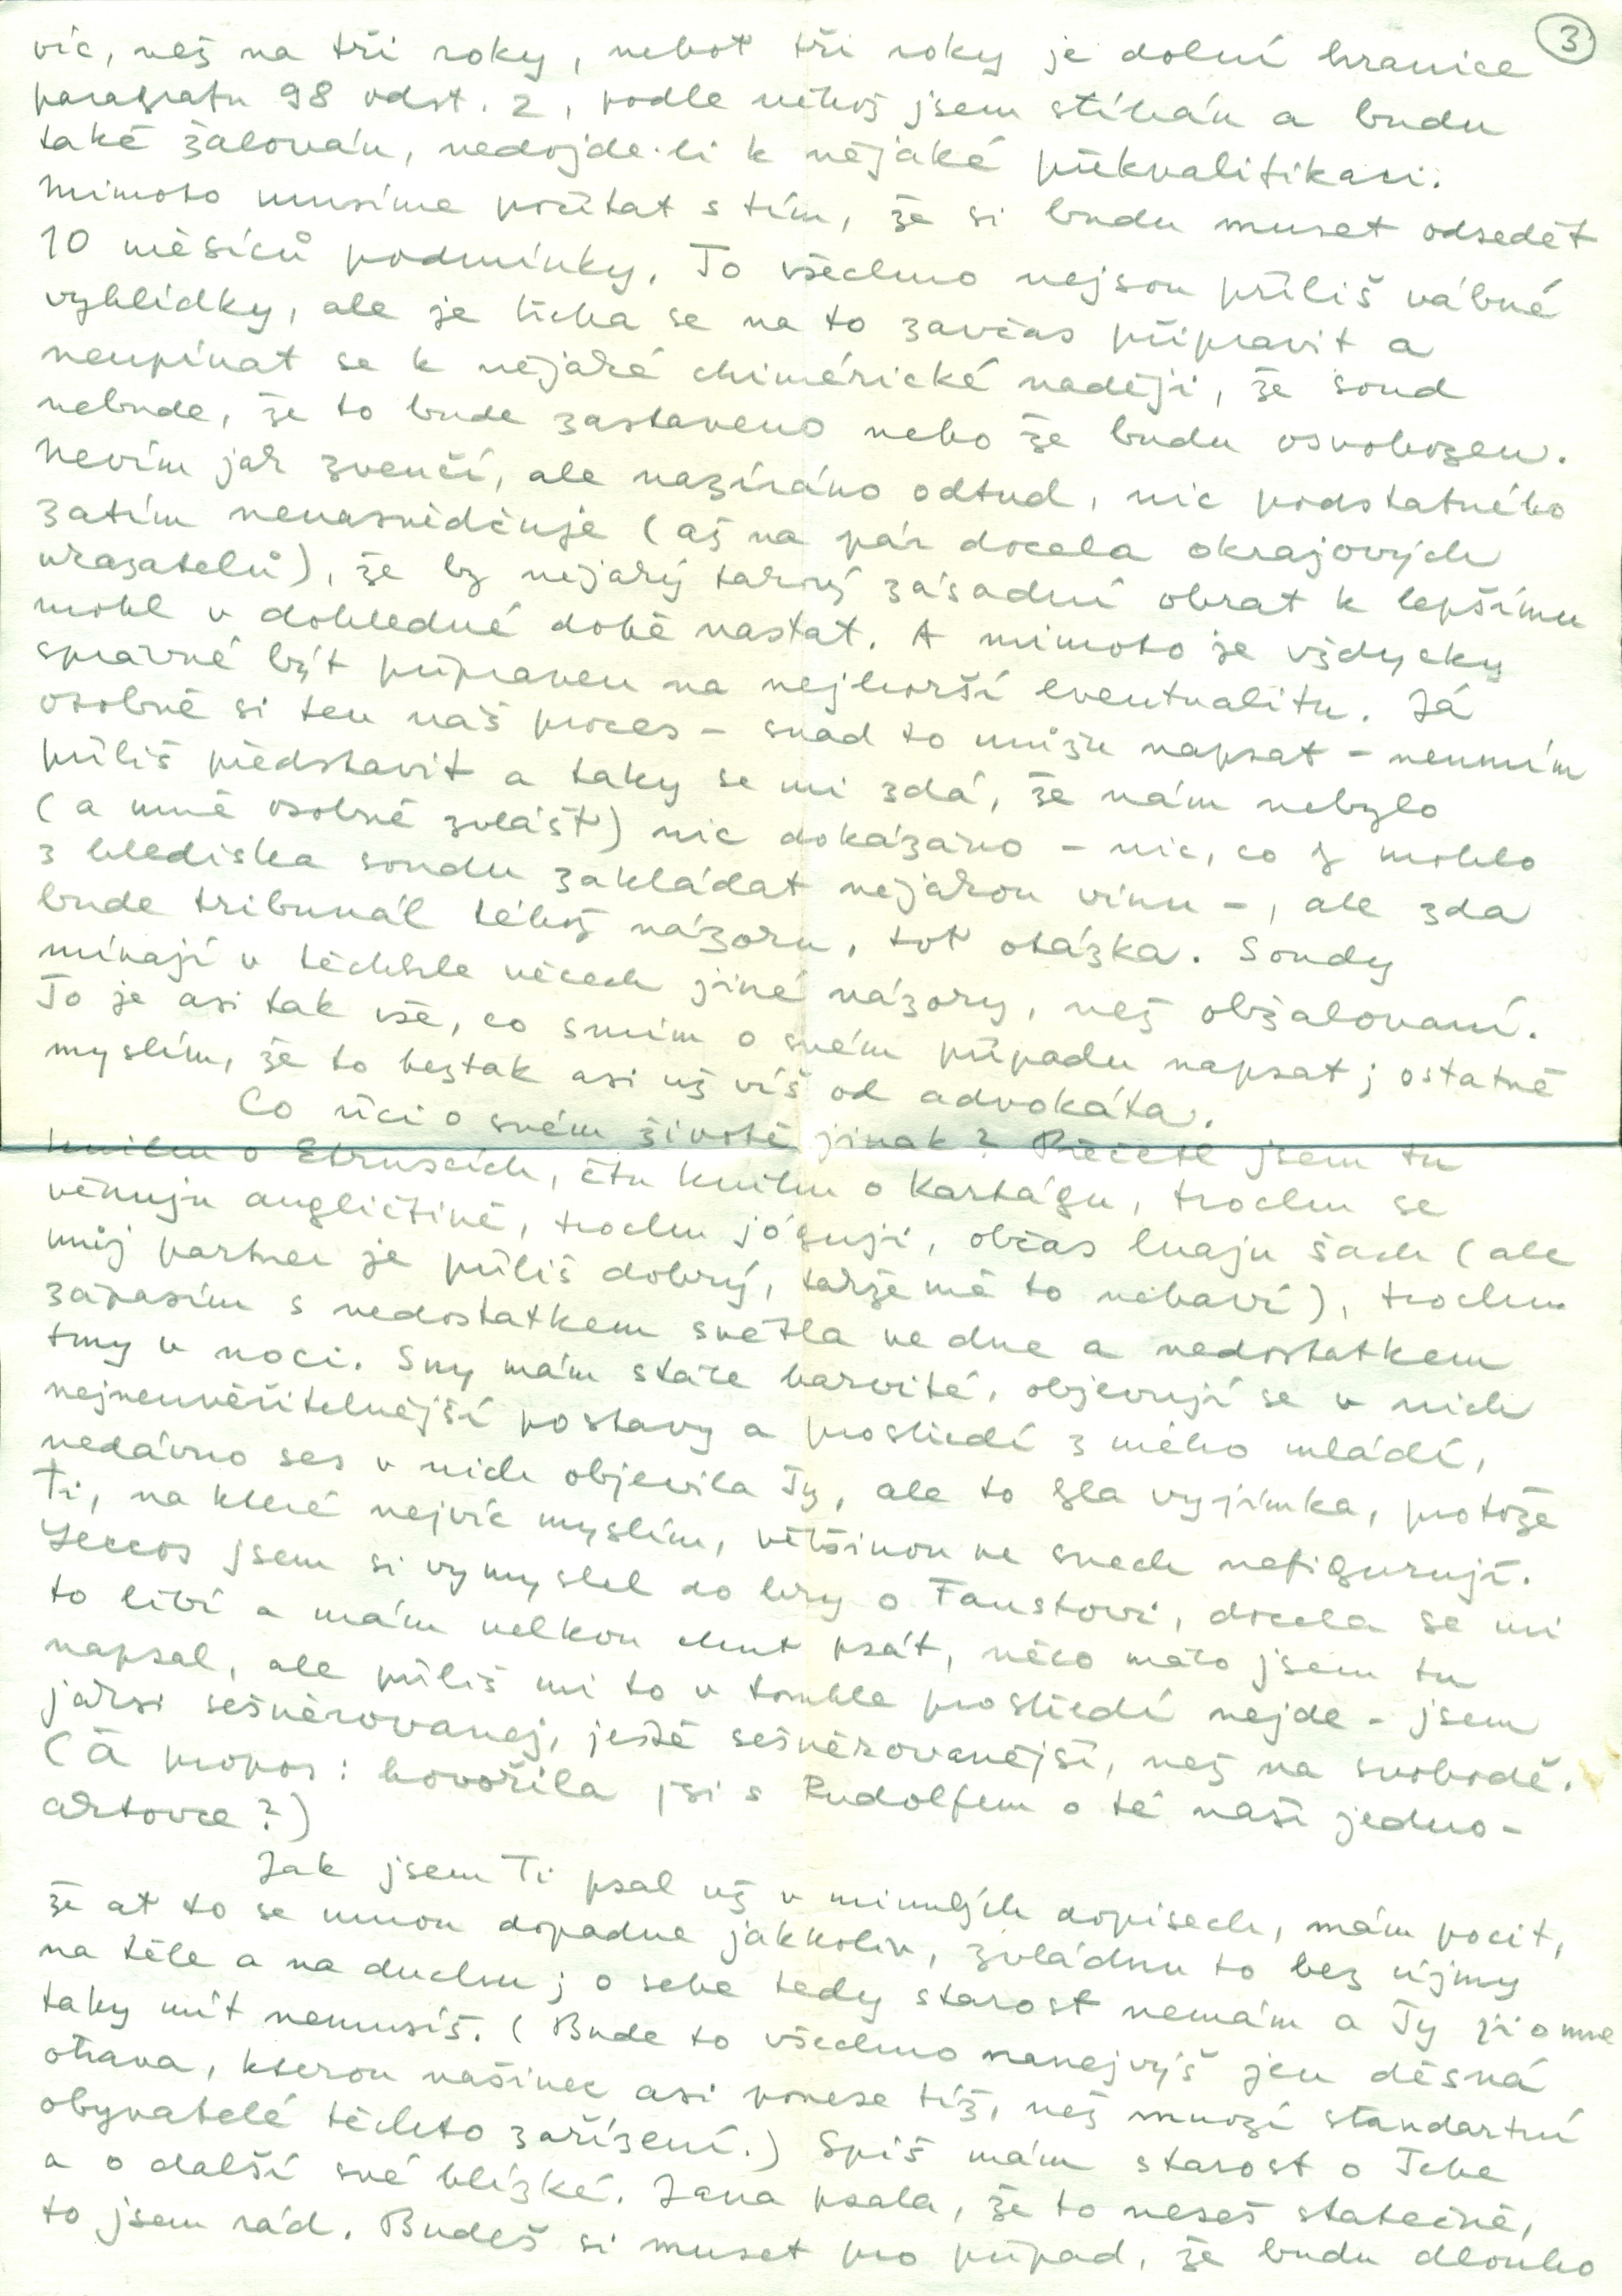 3
víc, než na tři roky, neboť tři roky je dolní hranice
paragrafu 98 odst. 2, podle něhož jsem stíhán a budu
také žalován, nedojde-li k nějaké překvalifikaci.
Mimoto musíme počítat s tím, že si budu muset odsedět
10 měsíců podmínky. To všechno nejsou příliš vábné
vyhlídky, ale je třeba se na to zavčas připravit a
neupínat se k nějaké chimérické naději, že soud
nebude, že to bude zastaveno nebo že budu osvobozen.
Nevím jak zvenčí, ale nazíráno odtud, nic podstatného
zatím nenasvědčuje (až na pár docela okrajových
ukazatelů), že by nějaký takový zásadní obrat k lepšímu
mohl v dohledné době nastat. A mimoto je vždycky
správné být připraven na nejhorší eventualitu. Já
osobně si ten náš proces - snad to můžu napsat - neumím
příliš představit a taky se mi zdá, že nám nebylo
(a mně osobně zvlášť) nic dokázáno - nic, co by mohlo
z hlediska soudu zakládat nějakou vinu -, ale zda
bude tribunál téhož názoru, toť otázka. Soudy
mívají v těchhle věcech jiné názory, než obžalovaní.
To je asi tak vše, co smím o svém případu napsat; ostatně
myslím, že to beztak asi už víš od advokáta.
Co říci o svém životě jinak? Přečetl jsem tu
knihu o Etruscích, čtu knihu o Kartágu, trochu se
věnuju angličtině, trochu jóguji, občas hraju šach (ale
můj partner je příliš dobrý, takže mě to nebaví), trochu
zápasím s nedostatkem světla ve dne a nedostatkem
tmy v noci. Sny mám stále barvité, objevují se v nich
nejneuvěřitelnější postavy a prostředí z mého mládí,
nedávno ses v nich objevila Ty, ale to byla vyjímka, protože
Ti, na které nejvíc myslím, většinou ve snech nefigurují.
Leccos jsem si vymyslel do hry o Faustovi, docela se mi
to líbí a mám velkou chuť psát, něco málo jsem tu
napsal, ale příliš mi to v tomhle prostředí nejde - jsem
jaksi sešněrovanej, ještě sešněrovanější, než na svobodě.
(Á propos: hovořila jsi s Rudolfem o té naší jedno-
aktovce?)
Jak jsem Ti psal už v minulých dopisech, mám pocit,
že ať to se mnou dopadne jakkoliv, zvládnu to bez újmy
na těle a na duchu; o sebe tedy starost nemám a Ty ji o mne
taky mít nemusíš. (Bude to všechno nanejvýš jen děsná
otrava, kterou našinec asi ponese tíž, než mnozí standartní
obyvatelé těchto zařízení.) Spíš mám starost o Tebe
a o další své blízké. Jana psala, že to neseš statečně,
to jsem rád. Budeš si muset pro případ, že budu dlouho